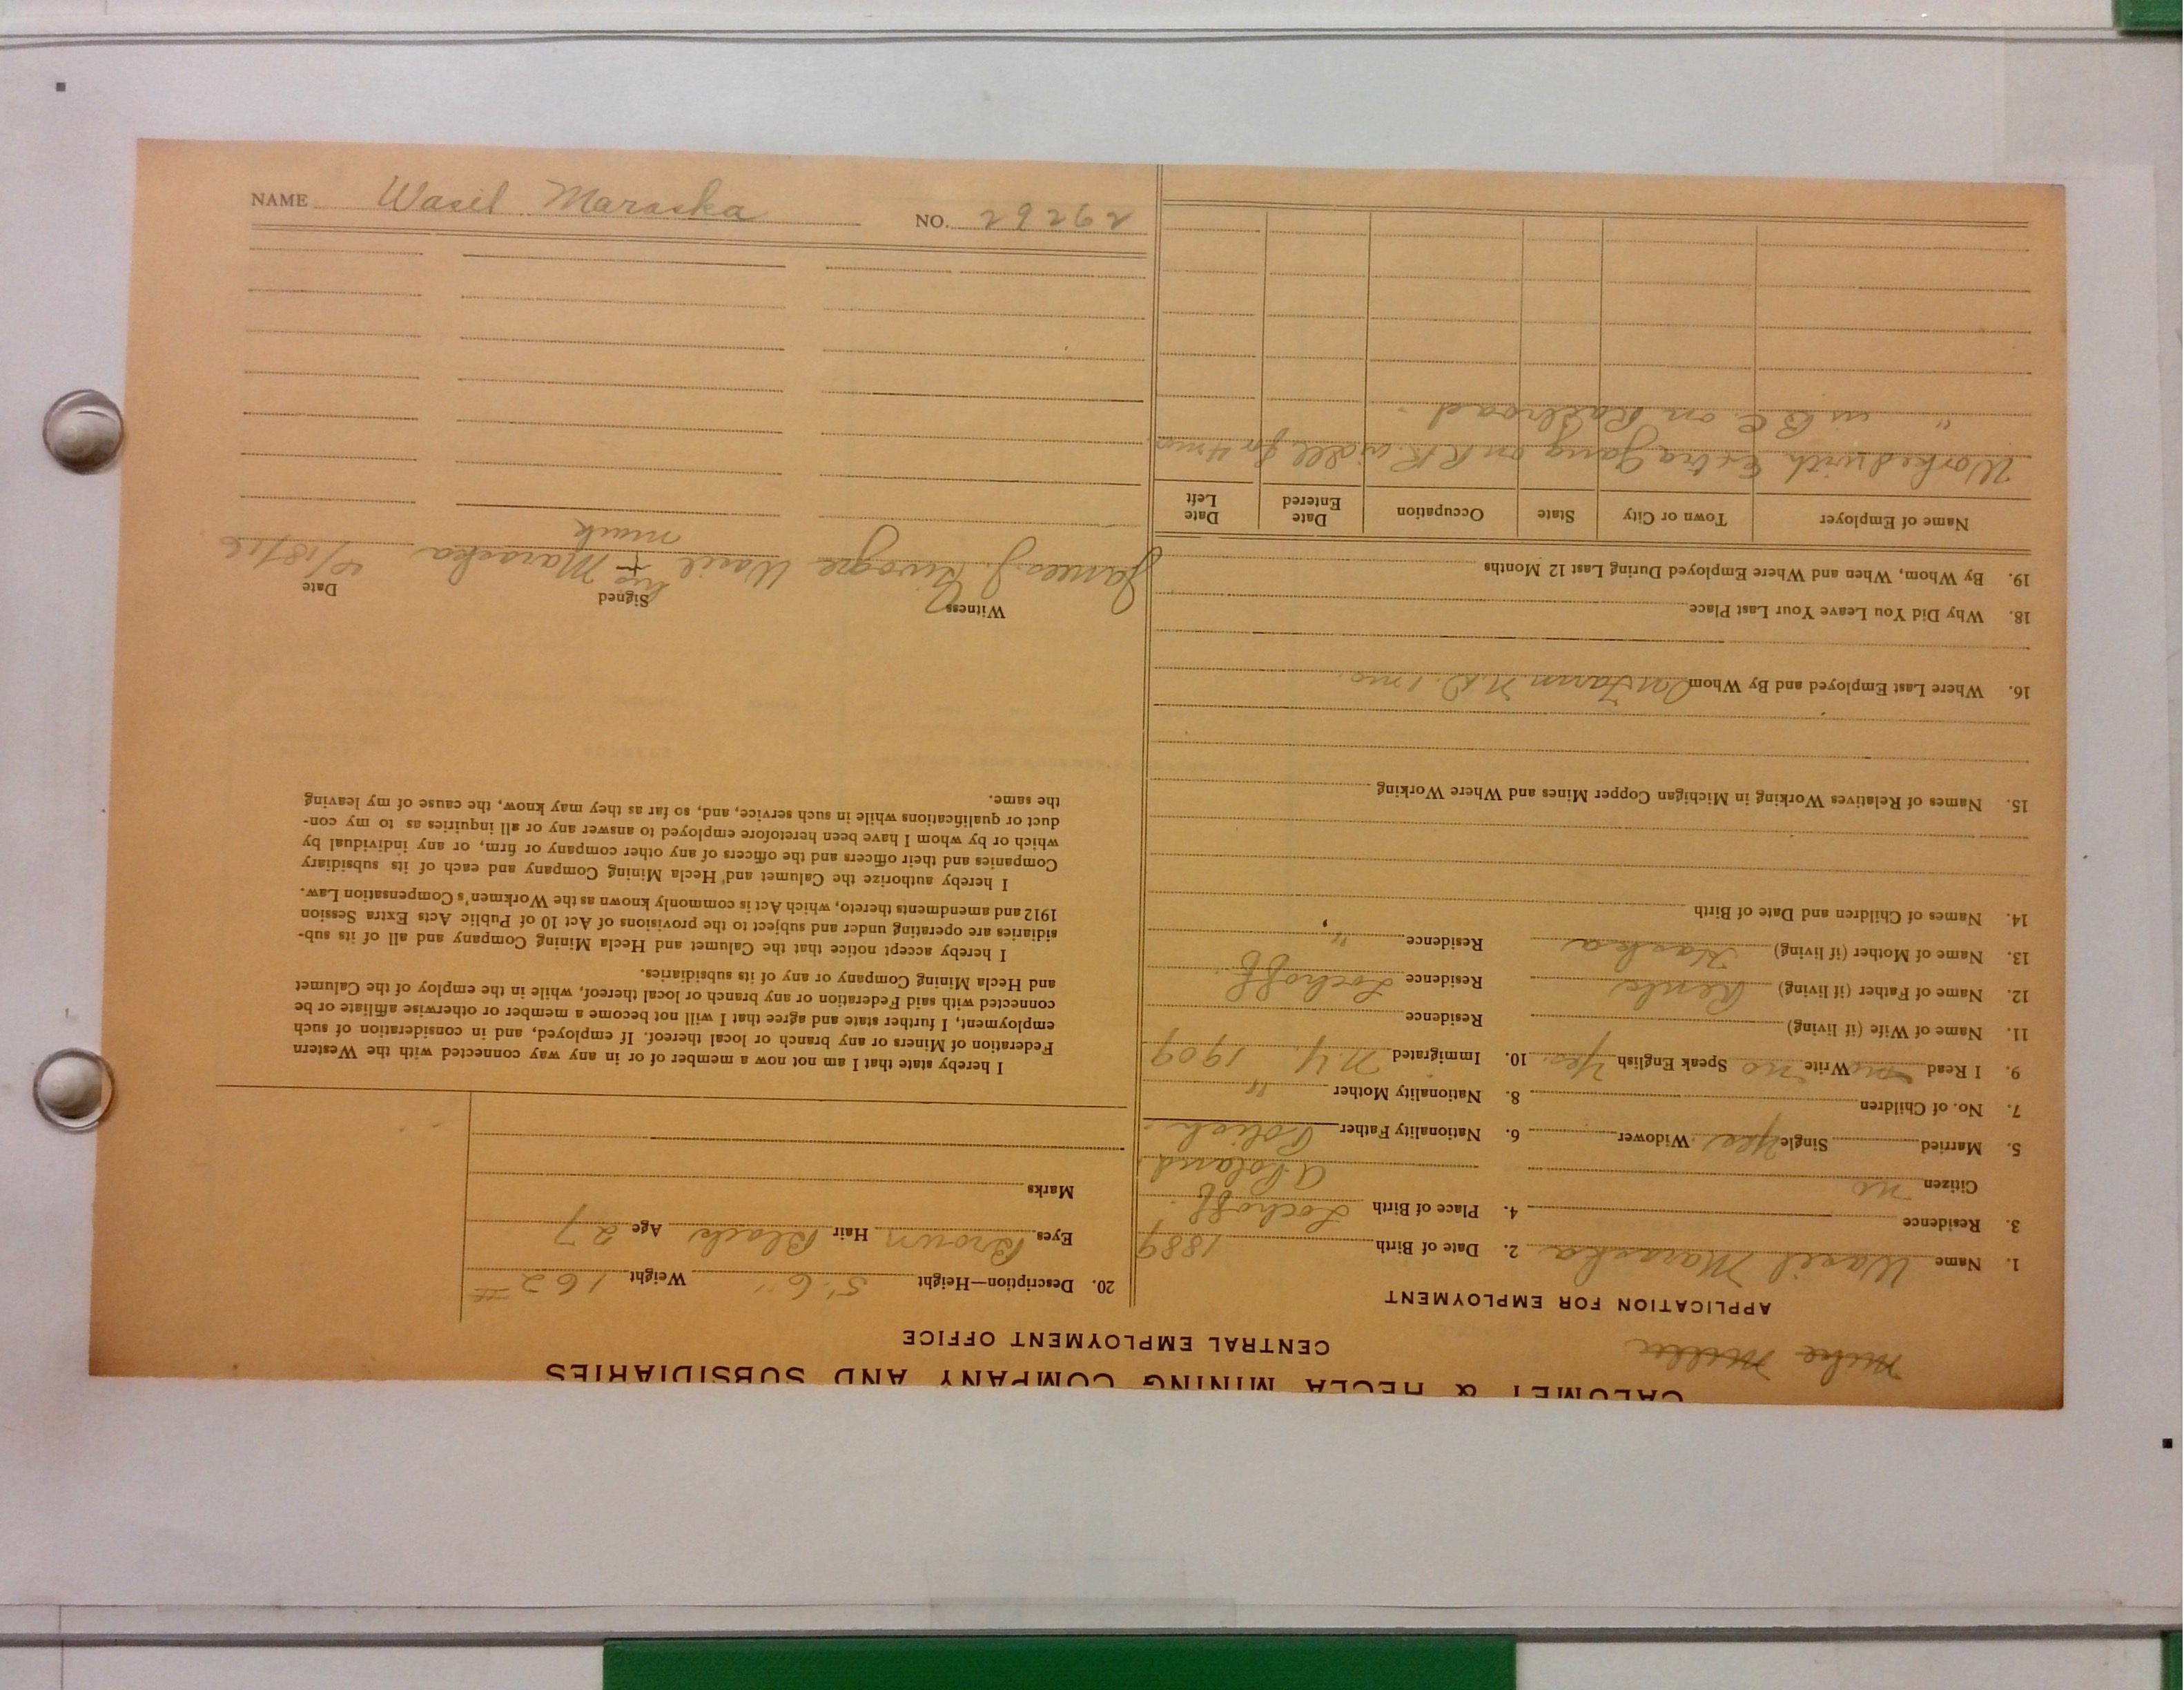 NAME Wasil Maraska NO. 29262
CALUMET & HECLA MINING COMPANY AND SUBSIDIARIES
CENTRAL EMPLOYMENT OFFICE
Mike Miller
APPLICATION FOR EMPLOYMENT
1. Name Wasil Maraska 2. Date of Birth 1889
3. Residence 4. Place of Birth Lochoff
Citizen no Poland
5. Married Single Yes Widower 6. Nationality Father Polish
7. No. of Children 8. Nationality Mother "
9. I Read no Write no Speak English Yes 10. Immigrated N.Y. 1909
11. Name of Wife (if living) Residence
12. Name of Father (if living) Residence Lochoff
13. Name of Mother (if living) Residence "
14. Names of Children and Date of Birth
15. Names of Relatives Working in Michigan Copper Mines and Where Working
16. Where Last Employed and By Whom On Farm N.D. 1 mo.
18. Why Did You Leave Your Last Place
19. By Whom, When and Where Employed During Last 12 Months
Name of Employer Town or City State Occupation Date Entered Date Left
Worked with Extra Gang on RR. in Ill for 4 mos
" in B.C. on Railroad.
20. Description—Height 5'6" Weight 162#
Eyes Brown Hair Black Age 27
Marks
I hereby state that I am not now a member of or in any way connected with the Western
Federation of Miners or any branch or local thereof. If employed, and in consideration of such
employment, I further state and agree that I will not become a member or otherwise affiliate or be
connected with said Federation or any branch or local thereof, while in the employ of the Calumet
and Hecla Mining Company or any of its subsidiaries.
I hereby accept notice that the Calumet and Hecla Mining Company and all of its sub-
sidiaries are operating under and subject to the provisions of Act 10 of Public Acts Extra Session
1912 and amendments thereto, which Act is commonly known as the Workmen's Compensation Law.
I hereby authorize the Calumet and Hecla Mining Company and each of its subsidiary
Companies and their officers and the officers of any other company or firm, or any individual by
which or by whom I have been heretofore employed to answer any or all inquiries as to my con-
duct or qualifications while in such service, and, so far as they may know, the cause of my leaving
the same.
Witness Signed Date
James J. Wasil his + Maraska
mark